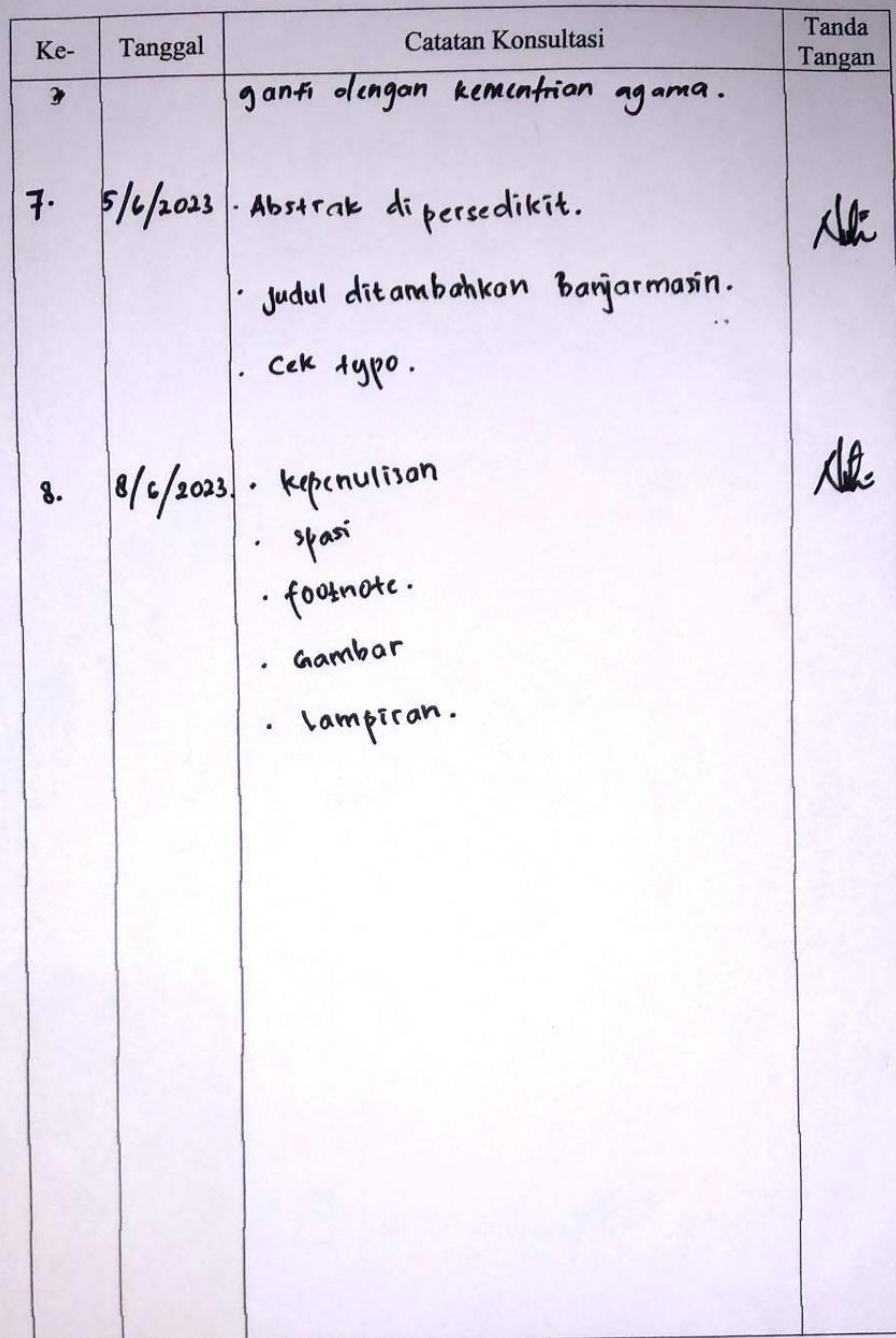 Ke- Tanggal Catatan Konsultasi Tanda Tangan
ganti dengan kementrian agama.
7. 5/6/2023 · Abstrak di persedikit.
· judul ditambahkan Banjarmasin.
· Cek typo.
8. 8/6/2023. · kepenulisan
· spasi
· footnote.
· Gambar
· lampiran.